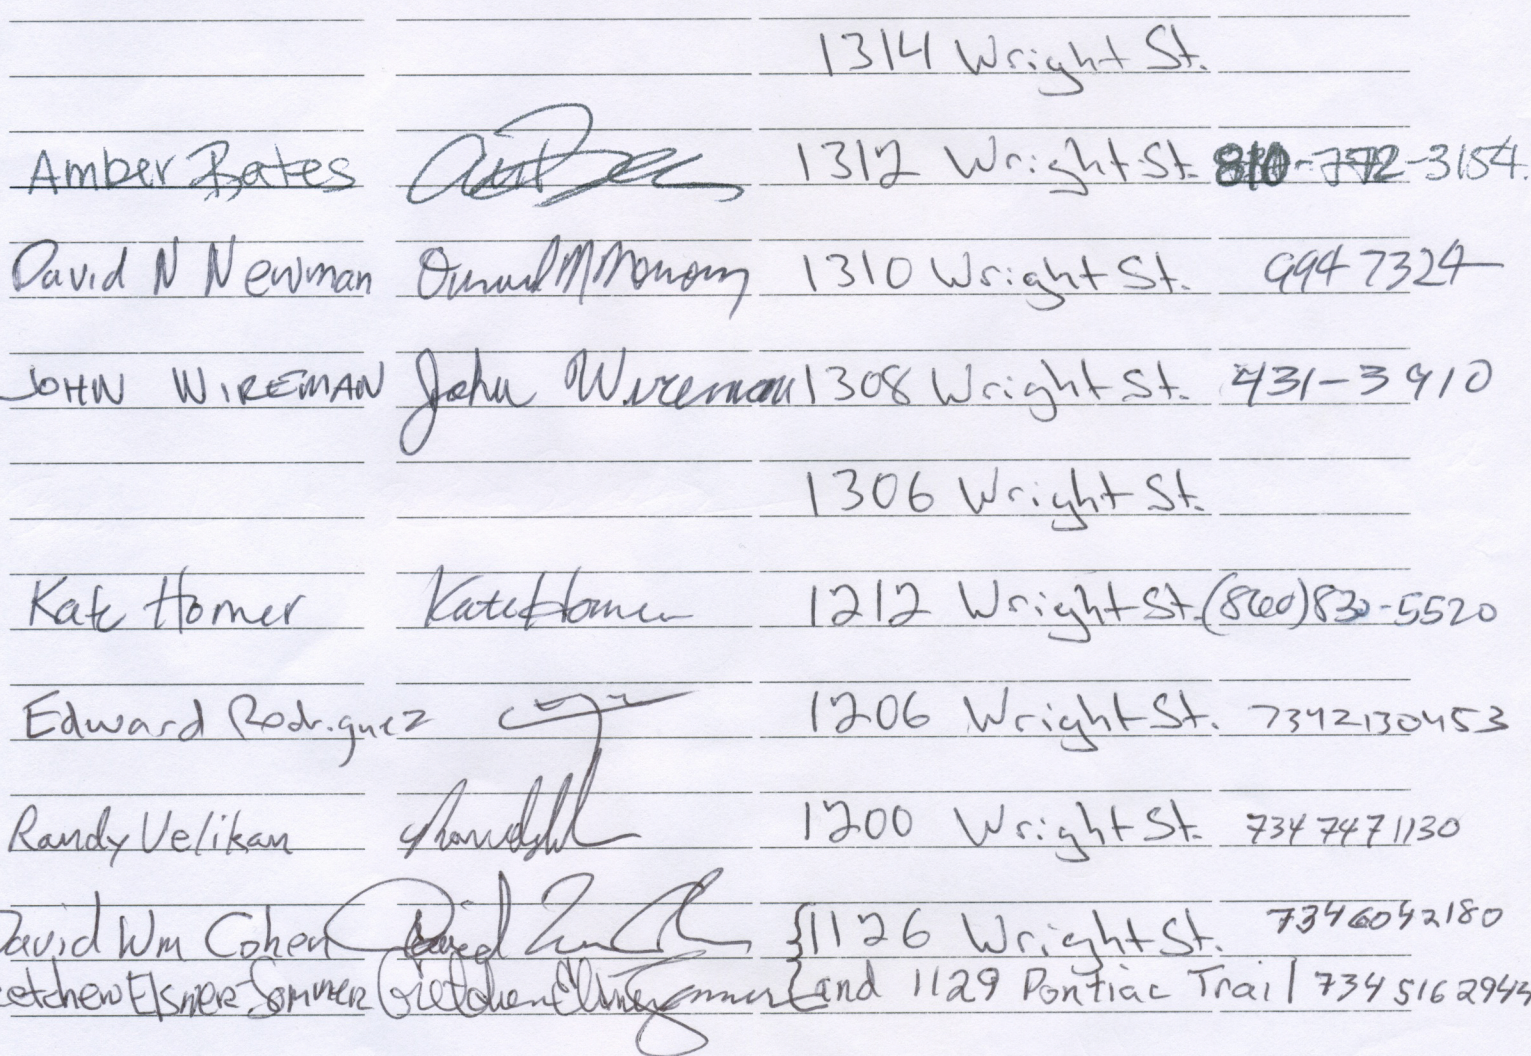 1314 Wright St.
Amber Bates 1312 Wright St. 810-772-3154
David N Newman 1310 Wright St. 994 7324
JOHN WIREMAN John Wireman 1308 Wright St. 431-3910
1306 Wright St.
Kate Homer Kate Homer 1212 Wright St. (860)830-5520
Edward Rodriguez 1206 Wright St. 7342130453
Randy Velikan 1200 Wright St. 734 747 1130
David Wm Cohen David 1126 Wright St. 7346042180
etchen Elsner-Sommer Gretchen Elsner-Sommer and 1129 Pontiac Trail 734 516 2943